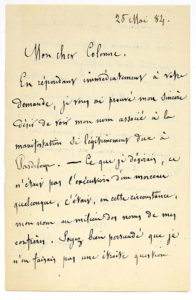 25 Mai 84.
Mon cher Colonne.
En répondant immédiatement à votre
demande, je vous ai prouvé mon sincère
désir de voir mon nom associé à la
manifestation si légitimement due à
Pasdeloup. — Ce que je désirais, ce
n'étais pas l'exécution d'un morceau
quelconque, c'étais, en cette circonstance,
mon nom au milieu des noms de mes
confrères. Soyez bien persuadé que je
n'en faisais pas une étroite question